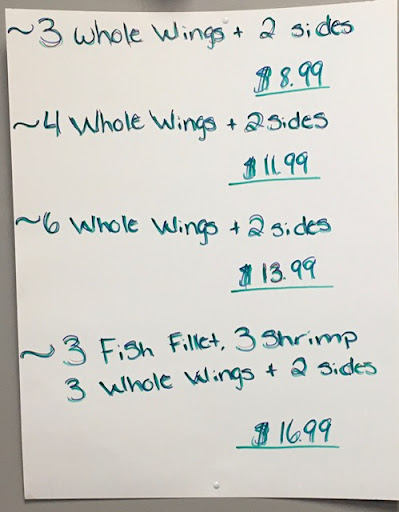 ~3 Whole Wings + 2 sides
$8.99
~4 Whole Wings + 2 sides
$11.99
~6 Whole Wings + 2 sides
$13.99
~3 Fish Fillet, 3 Shrimp
3 Whole Wings + 2 sides
$16.99